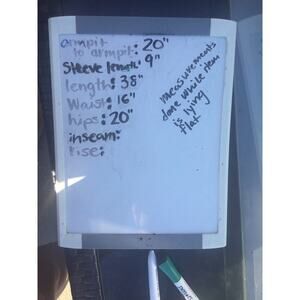 armpit
to armpit: 20"
Sleeve length: 9"
length: 38"
Waist: 16"
hips: 20"
inseam:
rise:
measurements
done while item
is lying
flat